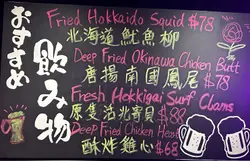 おすすめ
飲み物
Fried Hokkaido Squid $78
北海道魷魚柳
Deep Fried Okinawa Chicken Butt
南國鳳尾 $78
Fresh Hokkigai Surf Clams
原隻活北寄貝 $88
Deep Fried Chicken Heart
酥炸雞心 $68